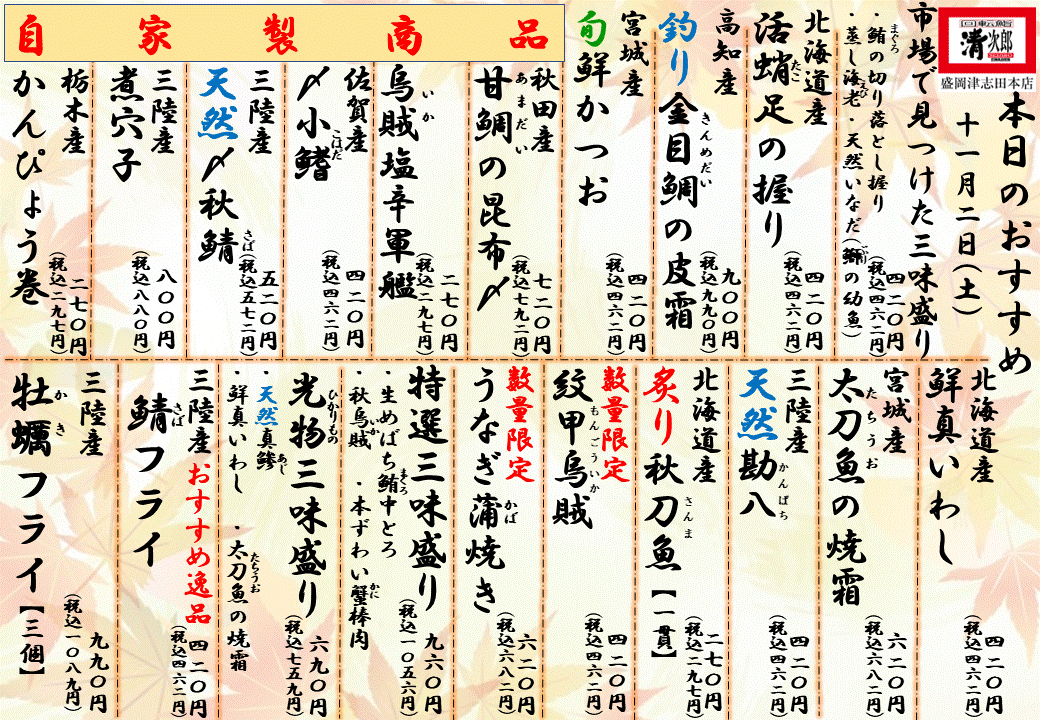 回転鮨
清次郎
盛岡津志田本店
本日のおすすめ
十一月二日(土)
市場で見つけた三味盛り
・鮪の切り落とし握り
・蒸し海老・天然いなだ(鰤の幼魚)
四二〇円
(税込四六二円)
北海道産
活蛸足の握り
四二〇円
(税込四六二円)
高知産
釣り金目鯛の皮霜
九〇〇円
(税込九九〇円)
宮城産
旬鮮かつお
四二〇円
(税込四六二円)
自家製商品
秋田産
甘鯛の昆布〆
七二〇円
(税込七九二円)
烏賊塩辛軍艦
二七〇円
(税込二九七円)
佐賀産
〆小鰭
四二〇円
(税込四六二円)
三陸産
天然〆秋鯖
五二〇円
(税込五七二円)
三陸産
煮穴子
八〇〇円
(税込八八〇円)
栃木産
かんぴょう巻
二七〇円
(税込二九七円)
北海道産
鮮真いわし
四二〇円
(税込四六二円)
宮城産
太刀魚の焼霜
六二〇円
(税込六八二円)
三陸産
天然勘八
四二〇円
(税込四六二円)
北海道産
炙り秋刀魚【一貫】
二七〇円
(税込二九七円)
数量限定
紋甲烏賊
四二〇円
(税込四六二円)
数量限定
うなぎ蒲焼き
六二〇円
(税込六八二円)
特選三味盛り
・生めばち鮪中とろ
・秋烏賊・本ずわい蟹棒肉
九六〇円
(税込一〇五六円)
光物三味盛り
・天然真鯵
・鮮真いわし・太刀魚の焼霜
六九〇円
(税込七五九円)
三陸産おすすめ逸品
鯖フライ
四二〇円
(税込四六二円)
三陸産
牡蠣フライ【三個】
九九〇円
(税込一〇八九円)